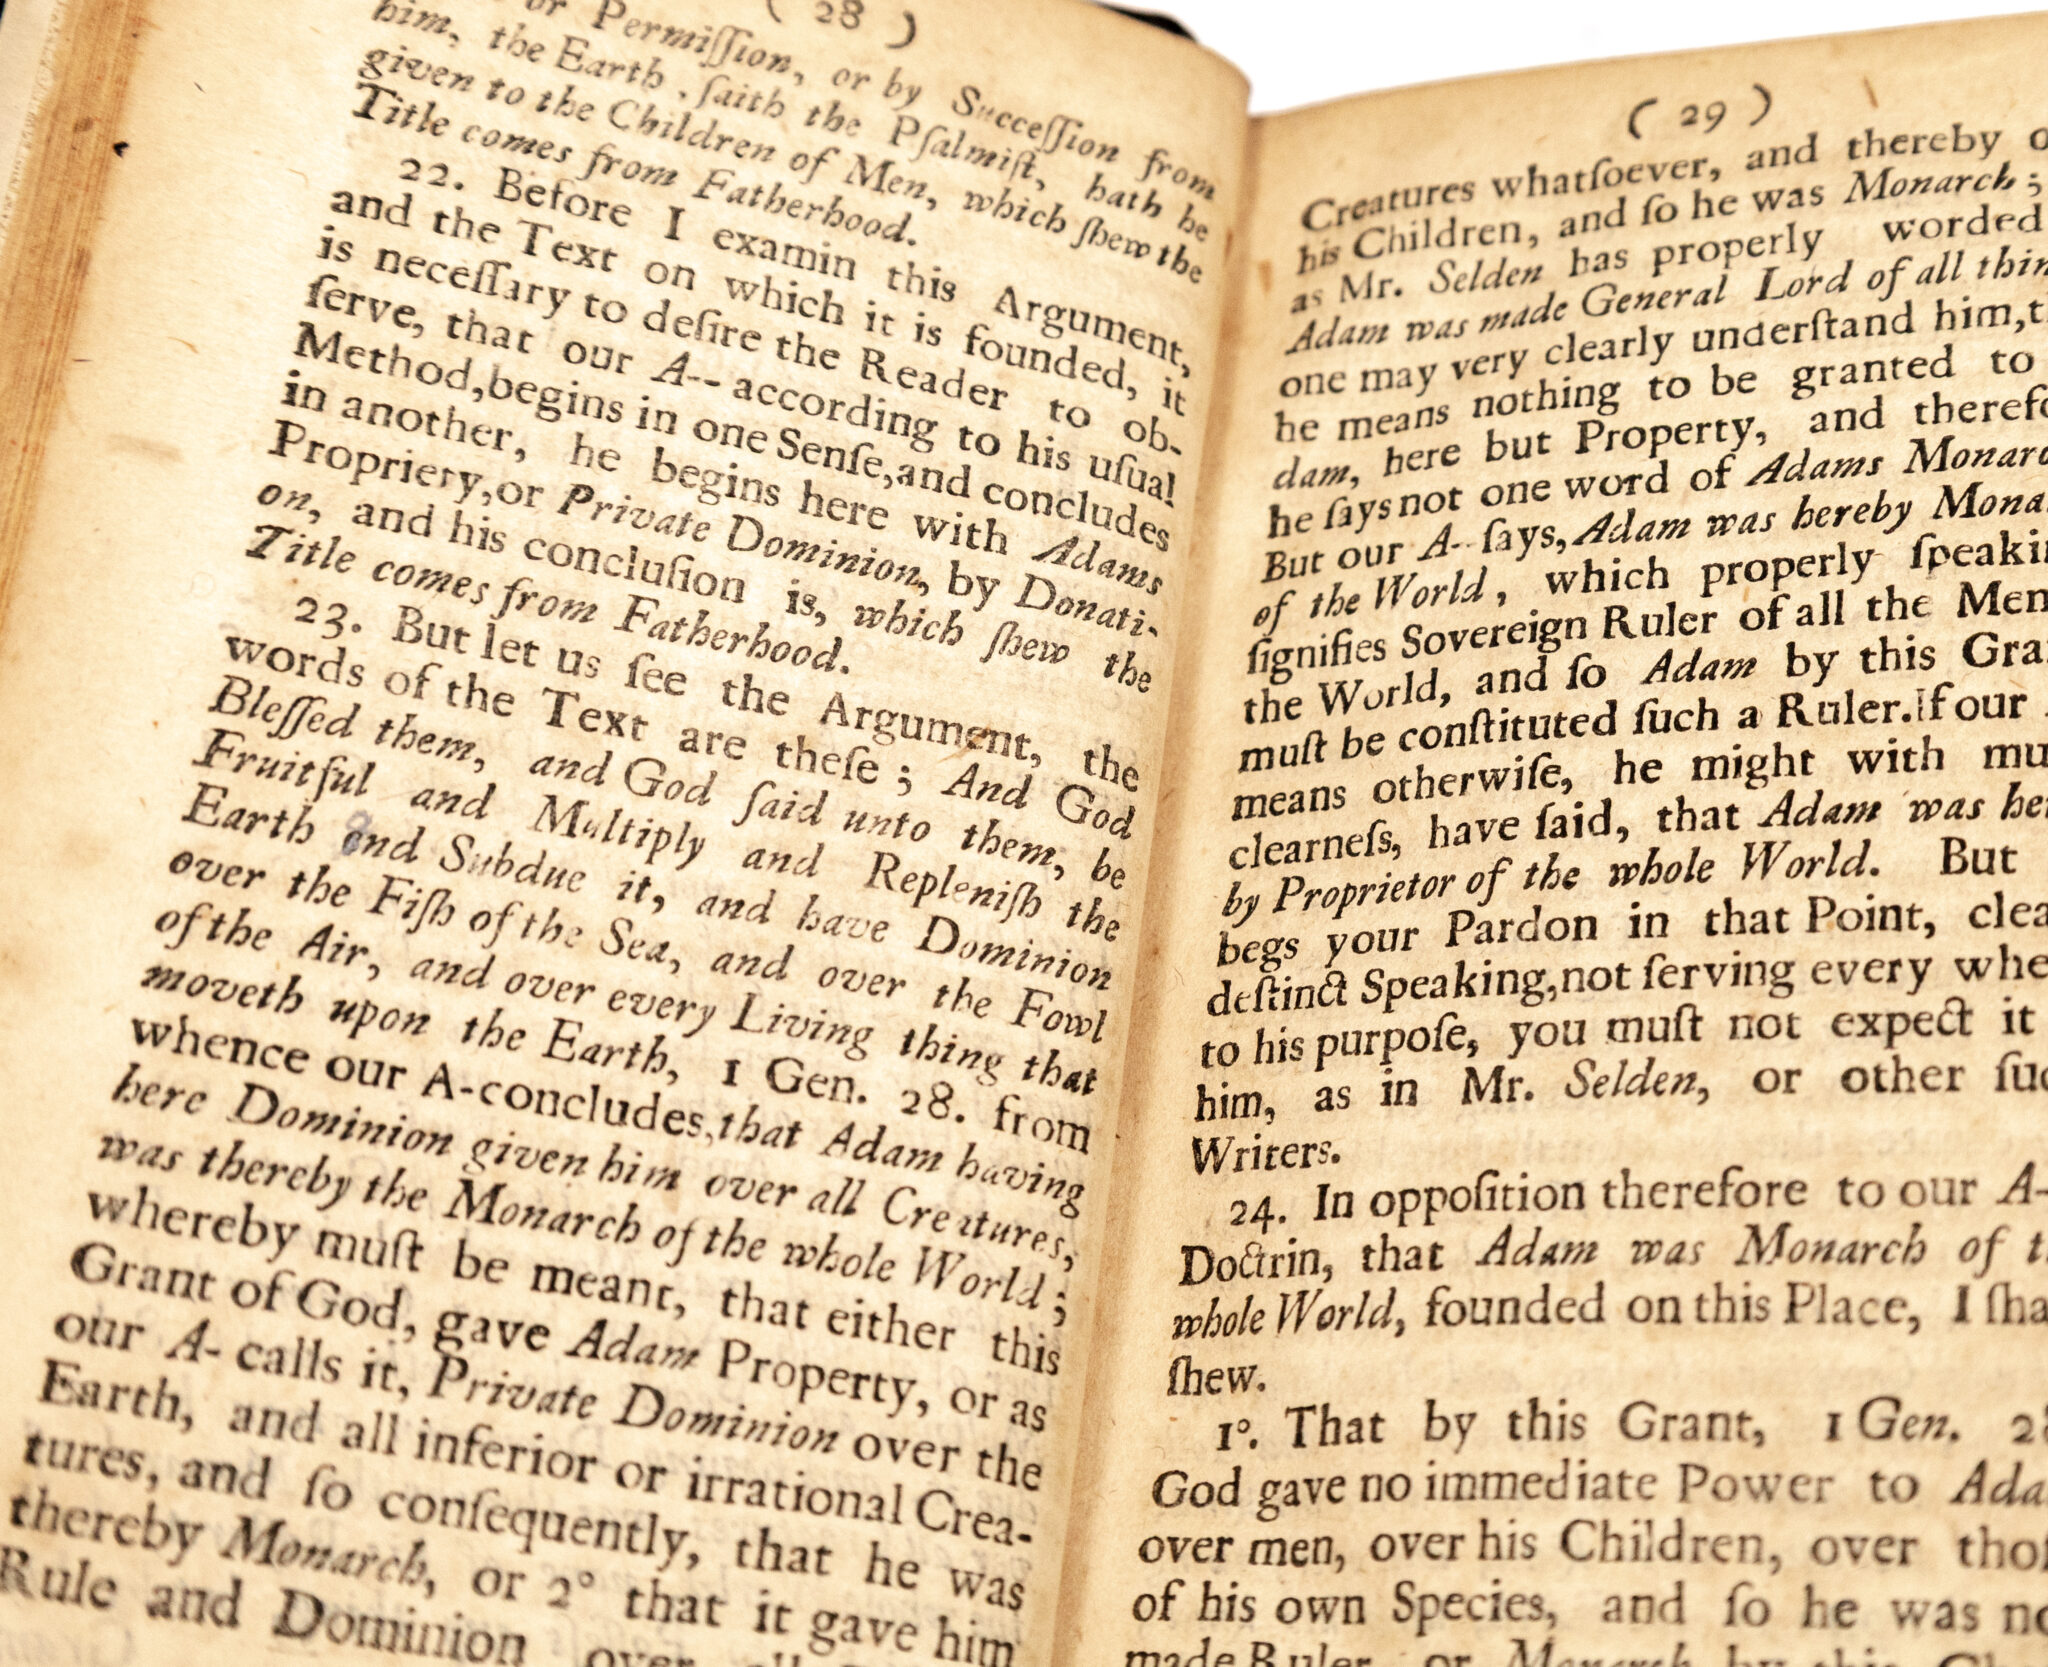 ( 28 )
or Permiſſion, or by Succeſſion from
him, the Earth, ſaith the Pſalmiſt, hath he
given to the Children of Men, which ſhew the
Title comes from Fatherhood.
22. Before I examin this Argument,
and the Text on which it is founded, it
is neceſſary to deſire the Reader to ob-
ſerve, that our A-- according to his uſual
Method,begins in one Senſe,and concludes
in another, he begins here with Adams
Propriety,or Private Dominion, by Donati-
on, and his concluſion is, which ſhew the
Title comes from Fatherhood.
23. But let us ſee the Argument, the
words of the Text are theſe; And God
Bleſſed them, and God ſaid unto them, be
Fruitful and Multiply and Repleniſh the
Earth and Subdue it, and have Dominion
over the Fiſh of the Sea, and over the Fowl
of the Air, and over every Living thing that
moveth upon the Earth, 1 Gen. 28. from
whence our A-concludes,that Adam having
here Dominion given him over all Creatures,
was thereby the Monarch of the whole World;
whereby muſt be meant, that either this
Grant of God, gave Adam Property, or as
our A- calls it, Private Dominion over the
Earth, and all inferior or irrational Crea-
tures, and ſo conſequently, that he was
thereby Monarch, or 2° that it gave him
Rule and Dominion over all
( 29 )
Creatures whatſoever, and thereby o
his Children, and ſo he was Monarch;
as Mr. Selden has properly worded
Adam was made General Lord of all thin
one may very clearly underſtand him,t
he means nothing to be granted to
dam, here but Property, and therefo
he ſays not one word of Adams Monarc
But our A-- ſays, Adam was hereby Mona
of the World, which properly ſpeakin
ſignifies Sovereign Ruler of all the Men
the World, and ſo Adam by this Gra
muſt be conſtituted ſuch a Ruler. If our
means otherwiſe, he might with mu
clearneſs, have ſaid, that Adam was her
by Proprietor of the whole World. But
begs your Pardon in that Point, clea
deſtinct Speaking,not ſerving every whe
to his purpoſe, you muſt not expect it
him, as in Mr. Selden, or other ſuc
Writers.
24. In oppoſition therefore to our A-
Doctrin, that Adam was Monarch of t
whole World, founded on this Place, I ſha
ſhew.
1°. That by this Grant, 1 Gen. 28
God gave no immediate Power to Ada
over men, over his Children, over thoſ
of his own Species, and ſo he was no
made Ruler, or Monarch by this